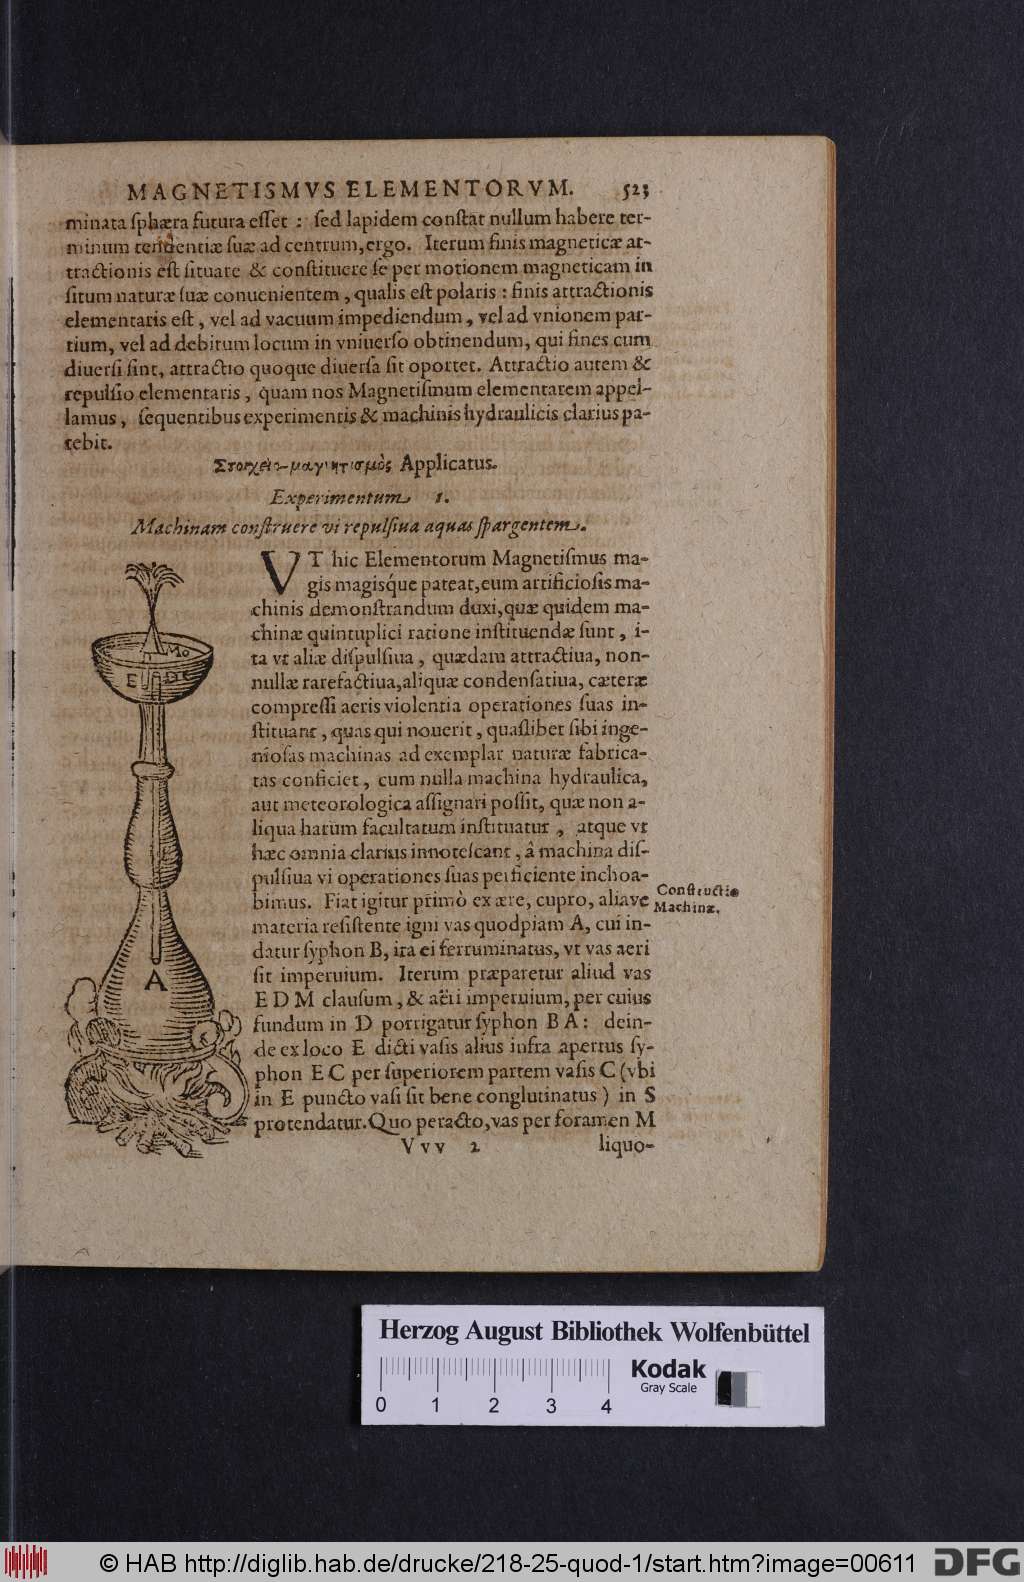 MAGNETISMVS ELEMENTORVM. 523
minata sphæra futura esset : sed lapidem constat nullum habere ter-
minum tendentiæ suæ ad centrum, ergo. Iterum finis magneticæ at-
tractionis est situare & constituere se per motionem magneticam in
situm naturæ suæ conuenientem, qualis est polaris : finis attractionis
elementaris est, vel ad vacuum impediendum, vel ad vnionem par-
tium, vel ad debitum locum in vniuerso obtinendum, qui fines cum
diuersi sint, attractio quoque diuersa sit oportet. Attractio autem &
repulsio elementaris, quam nos Magnetismum elementarem appel-
lamus, sequentibus experimentis & machinis hydraulicis clarius pa-
tebit.
Applicatus.
Experimentum 1.
Machinam construere vi repulsiua aquas spargentem.
VT hic Elementorum Magnetismus ma-
gis magisque pateat, eum artificiosis ma-
chinis demonstrandum duxi, quæ quidem ma-
chinæ quintuplici ratione instituendæ sunt, i-
ta vt aliæ dispulsiua, quædam attractiua, non-
nullæ rarefactiua, aliquæ condensatiua, cæteræ
compressi aeris violentia operationes suas in-
stituant, quas qui nouerit, quaslibet sibi inge-
niosas machinas ad exemplar naturæ fabrica-
tas conficiet, cum nulla machina hydraulica,
aut meteorologica assignari possit, quæ non a-
liqua harum facultatum instituatur, atque vt
hæc omnia clarius innotescant, â machina dis-
pulsiua vi operationes suas perficiente inchoa-
bimus. Fiat igitur primò ex ære, cupro, aliave
materia resistente igni vas quodpiam A, cui in-
datur syphon B, ita ei ferruminatus, vt vas aeri
sit imperuium. Iterum præparetur aliud vas
E D M clausum, & aëri imperuium, per cuius
fundum in D porrigatur syphon B A : dein-
de ex loco E dicti vasis alius infra apertus sy-
phon E C per superiorem partem vasis C (vbi
in E puncto vasi sit bene conglutinatus) in S
protendatur. Quo peracto, vas per foramen M
Constructio
Machinæ.
V v v 2 liquo-
M o
E D
A
Herzog August Bibliothek Wolfenbüttel
Kodak
Gray Scale
0 1 2 3 4
© HAB http://diglib.hab.de/drucke/218-25-quod-1/start.htm?image=00611
DFG